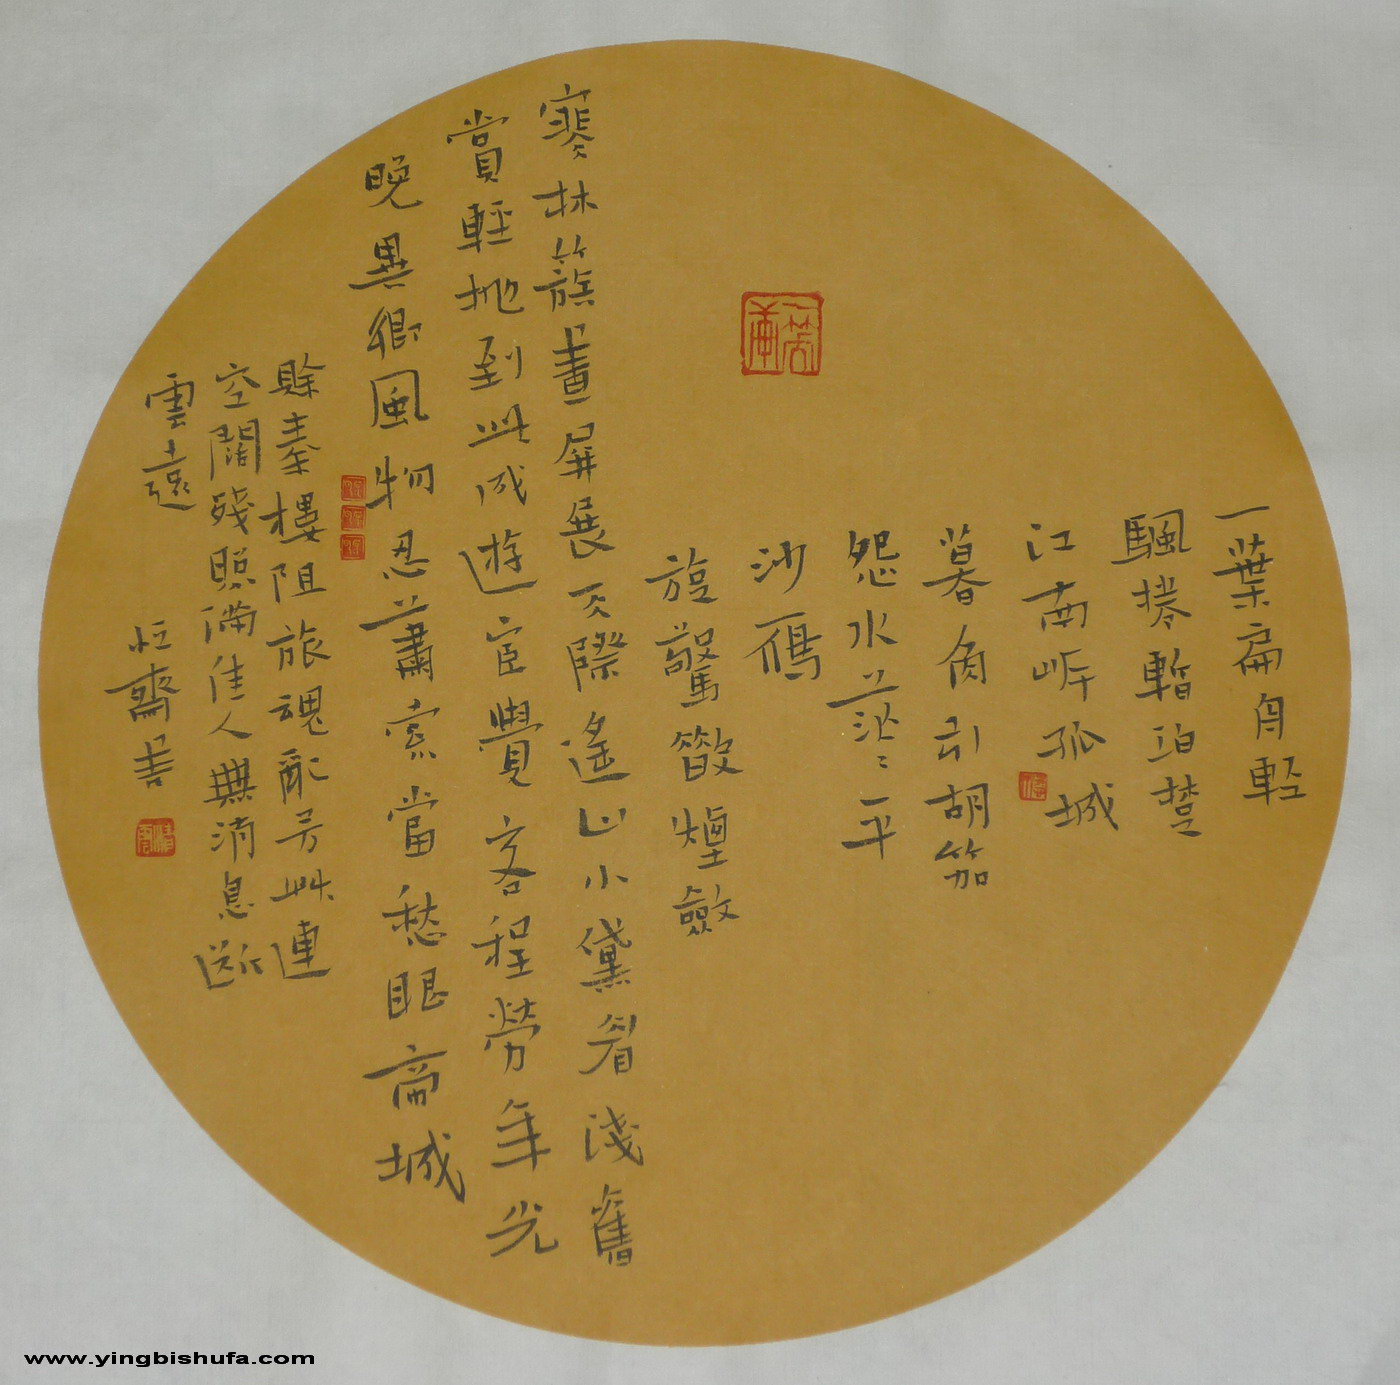 一葉扁舟輕
颿捲暫泊楚
江南岸孤城
暮角引胡笳
怨水茫〻平
沙鴈
旋驚散煙斂
寒林簇畫屏展天際遙山小黛眉淺舊
賞輕拋到此成遊宦覺客程勞年光
晚異鄉風物忍蕭索當愁眼帝城
賒秦樓阻旅魂亂芳艸連
空闊殘照滿佳人無消息斷
雲遠 恒齋書
www.yingbishufa.com